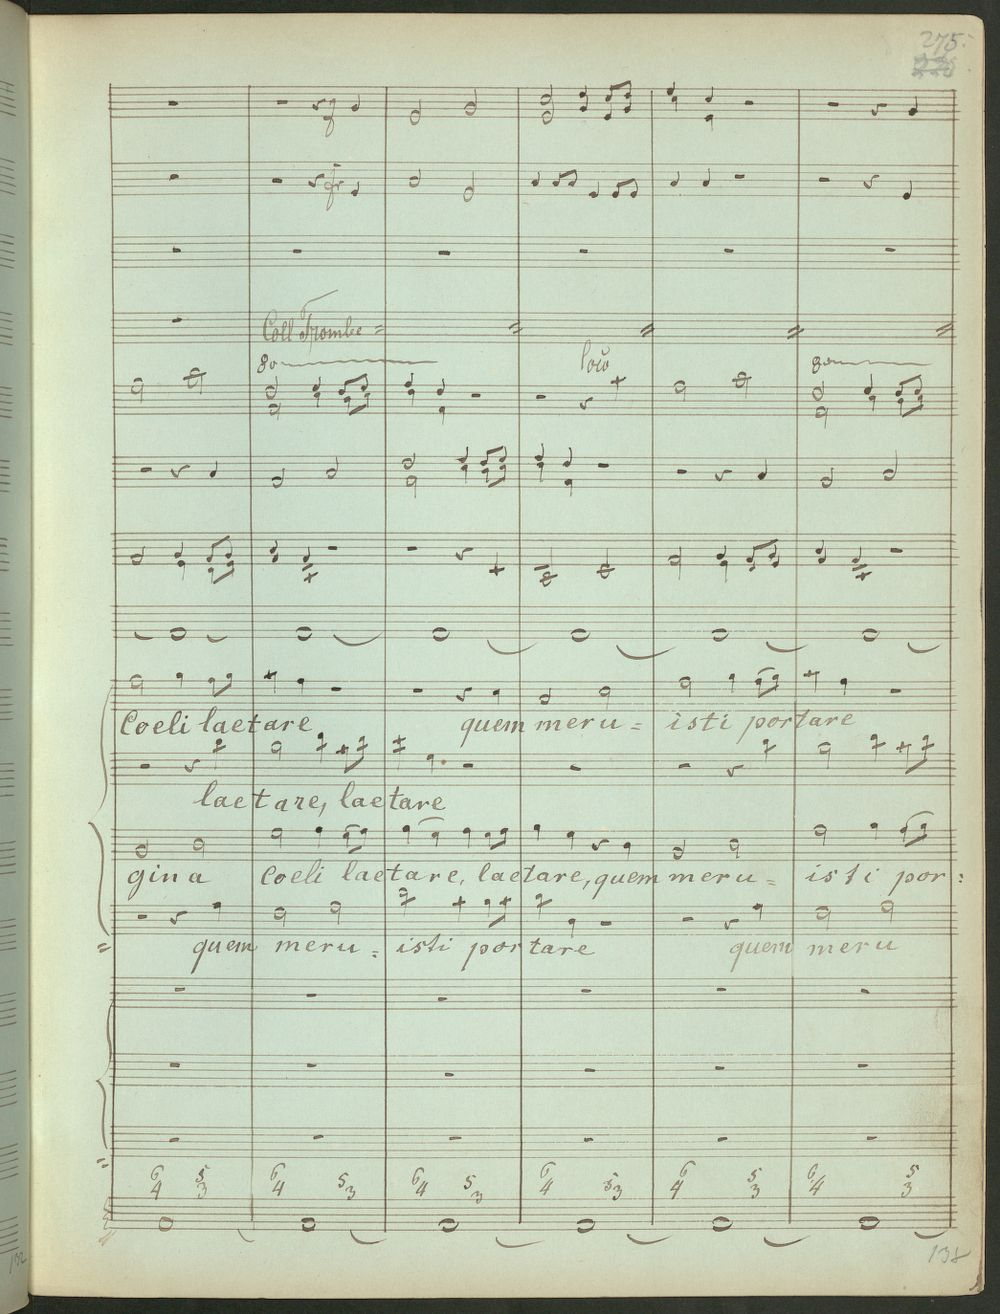 275.
225
Coll Trombe =
8va loco 8va
Coeli laetare quem meru = isti portare
laetare, laetare
gina Coeli laetare, laetare, quem meru = isti por:
quem meru = isti portare quem meru
6 4 5 3 6 4 5 3 6 4 5 3 6 4 5 3 6 4 5 3 6 4 5 3
138